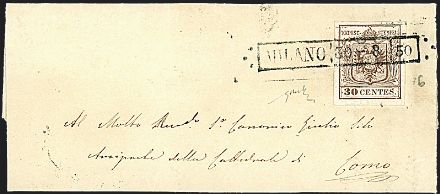 KKPOST-STEMPEL
MILANO 30 8 50
30 CENTES.
Al Molto Rev.do Sr. Canonico Giulio
Arciprete della Cattedrale di
Como